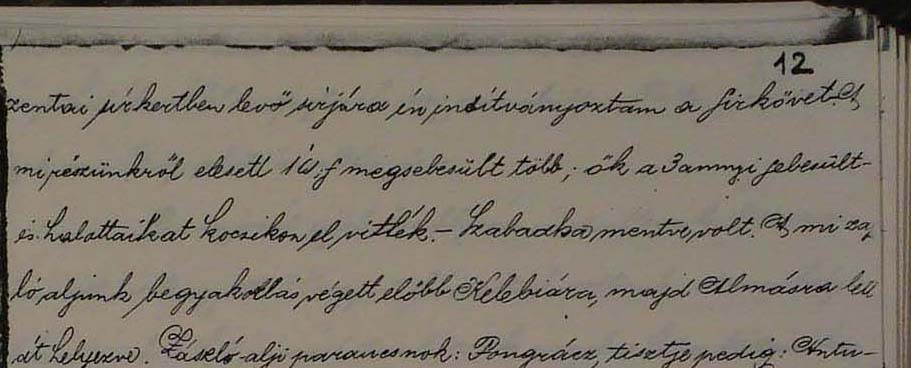 12
zentai sirkertben levő sirjára én inditványoztam a sirkövet. A
mi részünkről elesett 16, megsebesült több; ők a 3annyi sebesült-
és halottaikat kocsikon el vitték. – Szabadka mentve volt. A mi zá,
ló, aljunk begyakorlás végett előbb Kelebiára, majd Almásra lett
át helyezve. Zászló-alji parancsnok: Pongrácz, tisztje pedig: Antu-